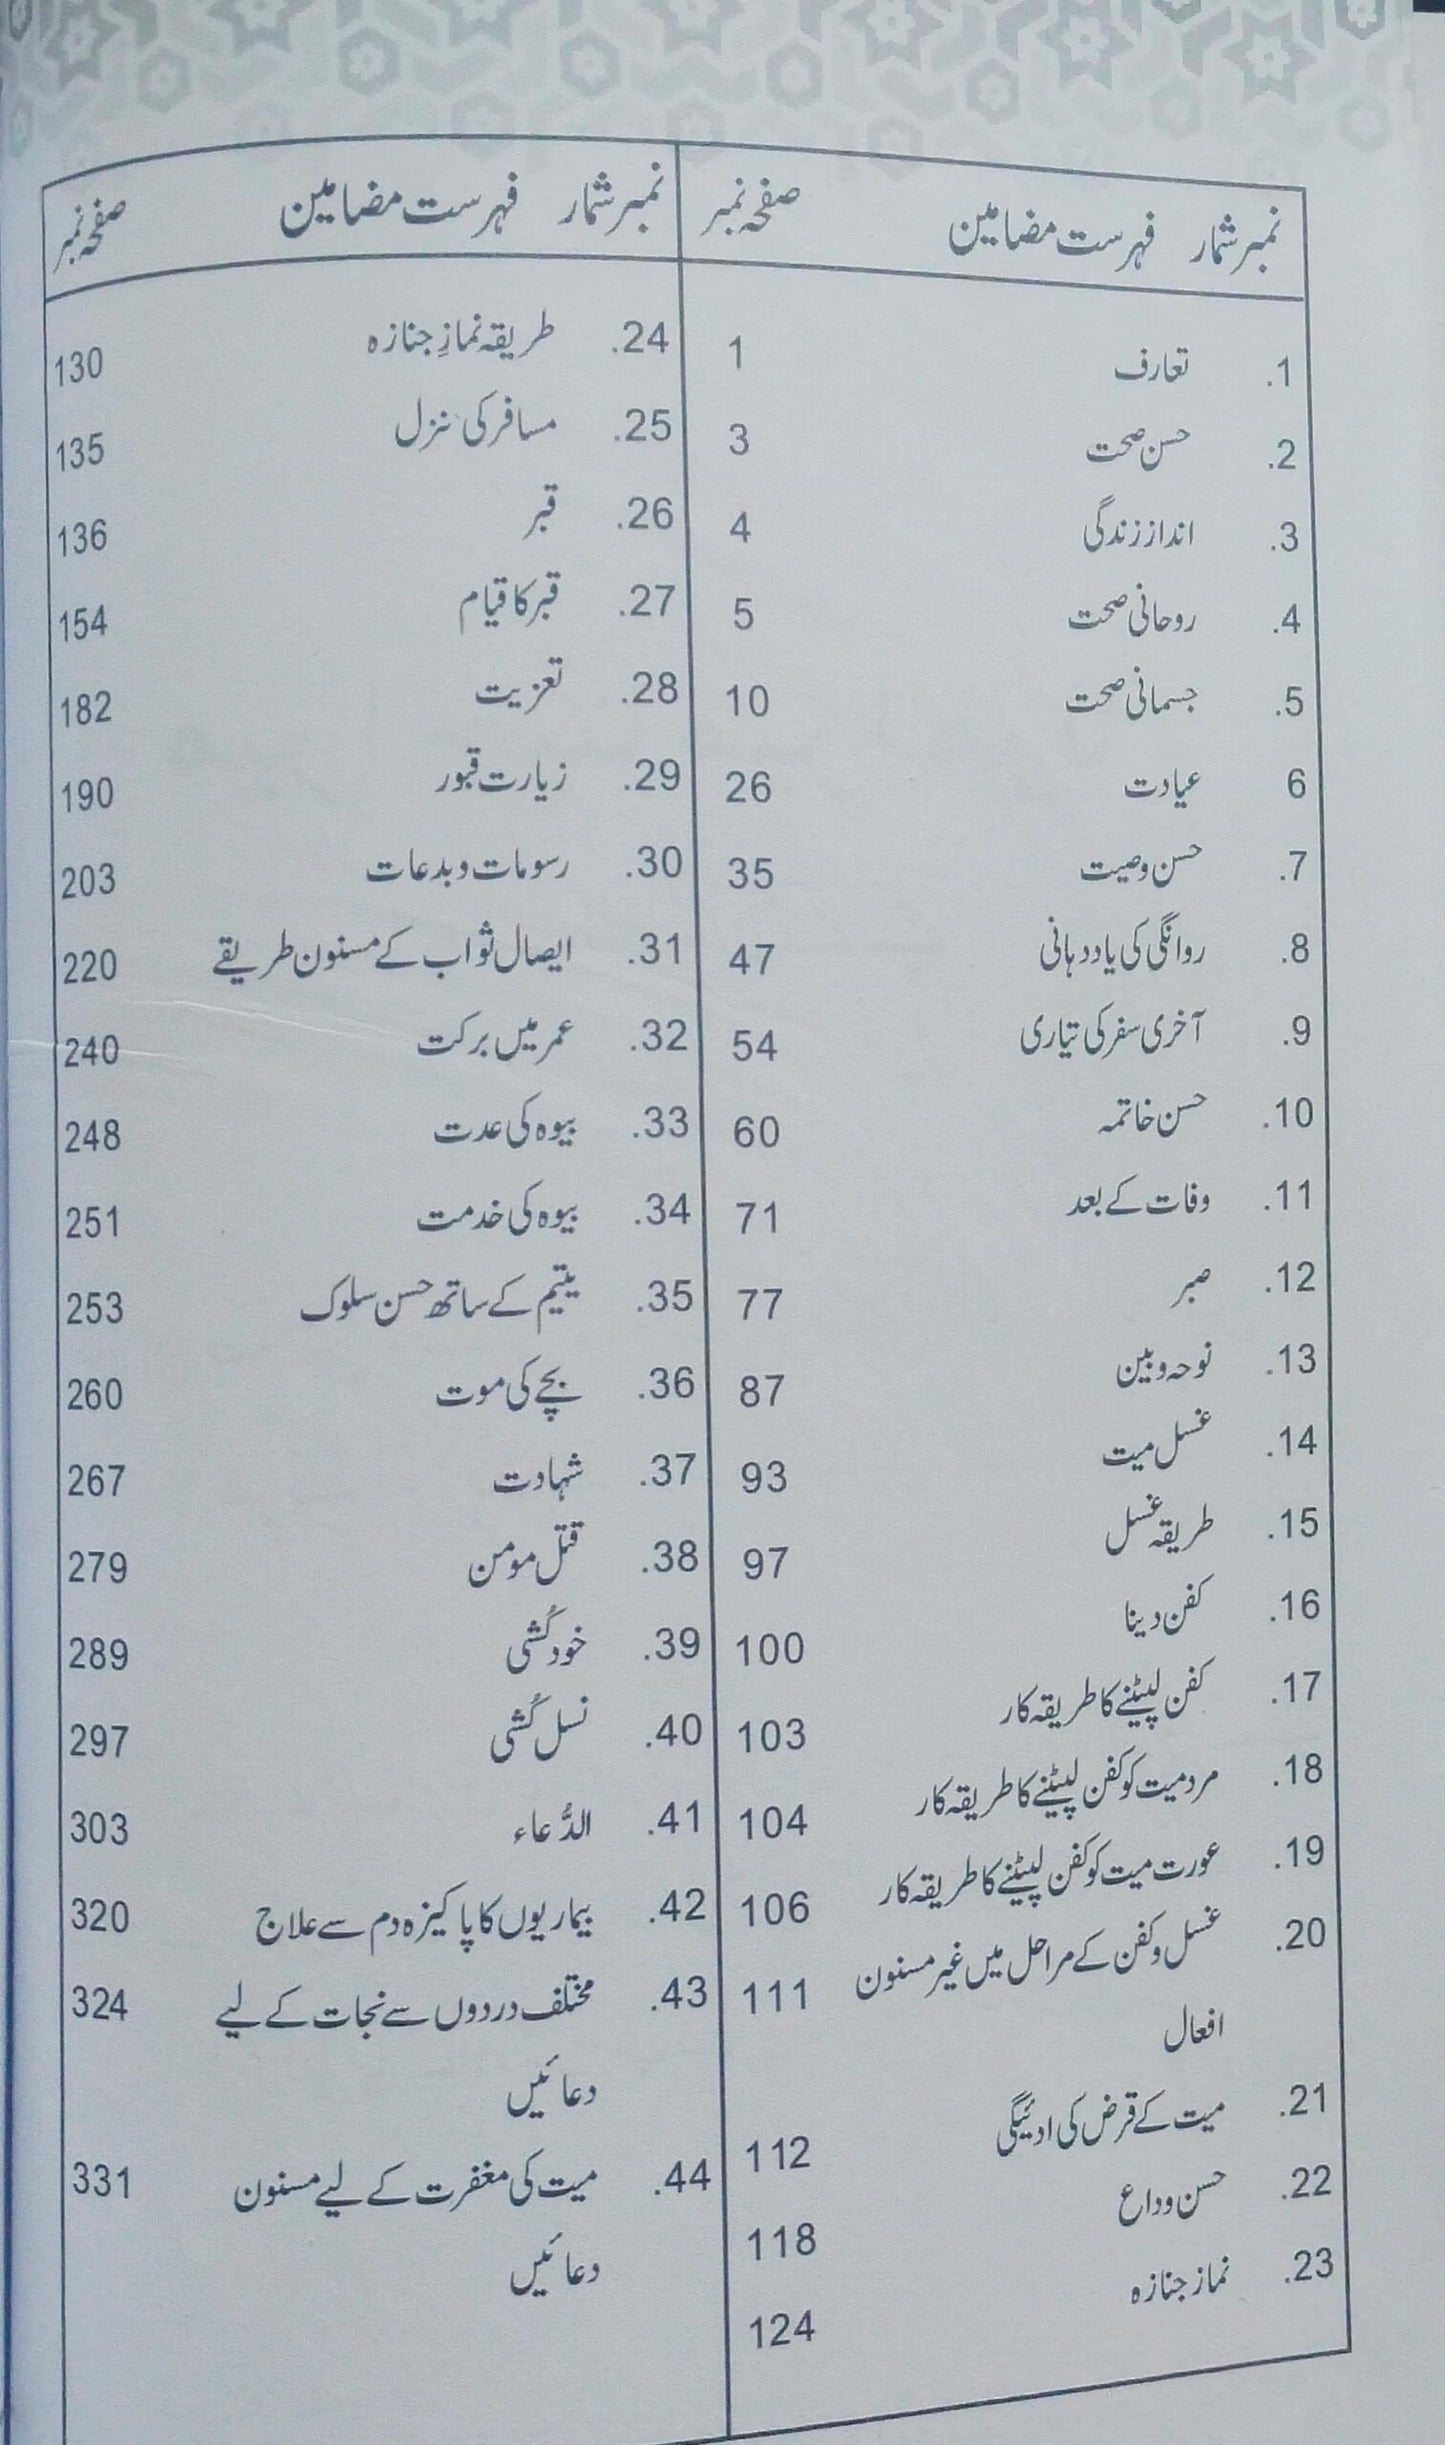 نمبر شمار فہرست مضامین صفحہ نمبر
1. تعارف 1
2. حسن صحت 3
3. انداز زندگی 4
4. روحانی صحت 5
5. جسمانی صحت 10
6 عیادت 26
7. حسن وصیت 35
8. روانگی کی یاددہانی 47
9. آخری سفر کی تیاری 54
10. حسن خاتمہ 60
11. وفات کے بعد 71
12. صبر 77
13. نوحہ و بین 87
14. غسل میت 93
15. طریقہ غسل 97
16. کفن دینا 100
17. کفن لپیٹنے کا طریقہ کار 103
18. مرد میت کو کفن لپیٹنے کا طریقہ کار 104
19. عورت میت کو کفن لپیٹنے کا طریقہ کار 106
20. غسل و کفن کے مراحل میں غیر مسنون 111
افعال
21. میت کے قرض کی ادئیگی 112
22. حسن وداع 118
23. نماز جنازہ 124
نمبر شمار فہرست مضامین صفحہ نمبر
24. طریقہ نمازِ جنازہ 130
25. مسافر کی نزل 135
26. قبر 136
27. قبر کا قیام 154
28. تعزیت 182
29. زیارت قبور 190
30. رسومات و بدعات 203
31. ایصال ثواب کے مسنون طریقے 220
32. عمر میں برکت 240
33. بیوہ کی عدت 248
34. بیوہ کی خدمت 251
35. یتیم کے ساتھ حسن سلوک 253
36. بچے کی موت 260
37. شہادت 267
38. قتل مومن 279
39. خودکُشی 289
40. نسل کُشی 297
41. الدُّعاء 303
42. بیماریوں کا پاکیزہ دم سے علاج 320
43. مختلف دردوں سے نجات کے لیے 324
دعائیں
44. میت کی مغفرت کے لیے مسنون 331
دعائیں